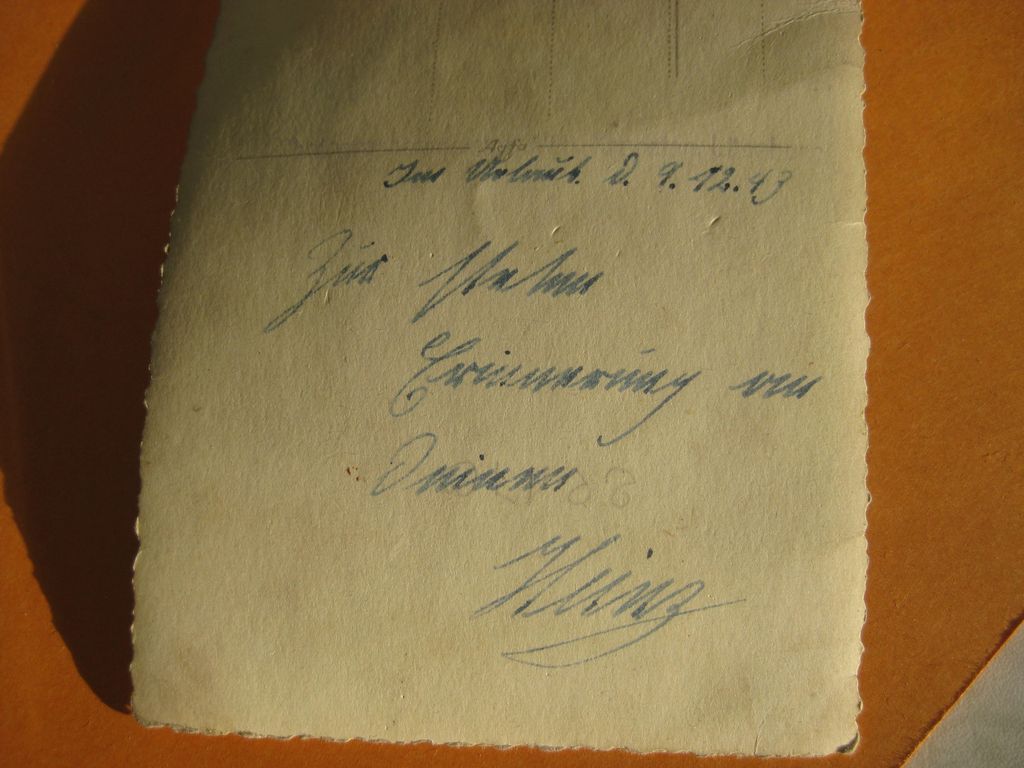 Agfa
Im Urlaub. D. 9.12.43
Zur steten
Erinnerung an
Deinen
Heinz